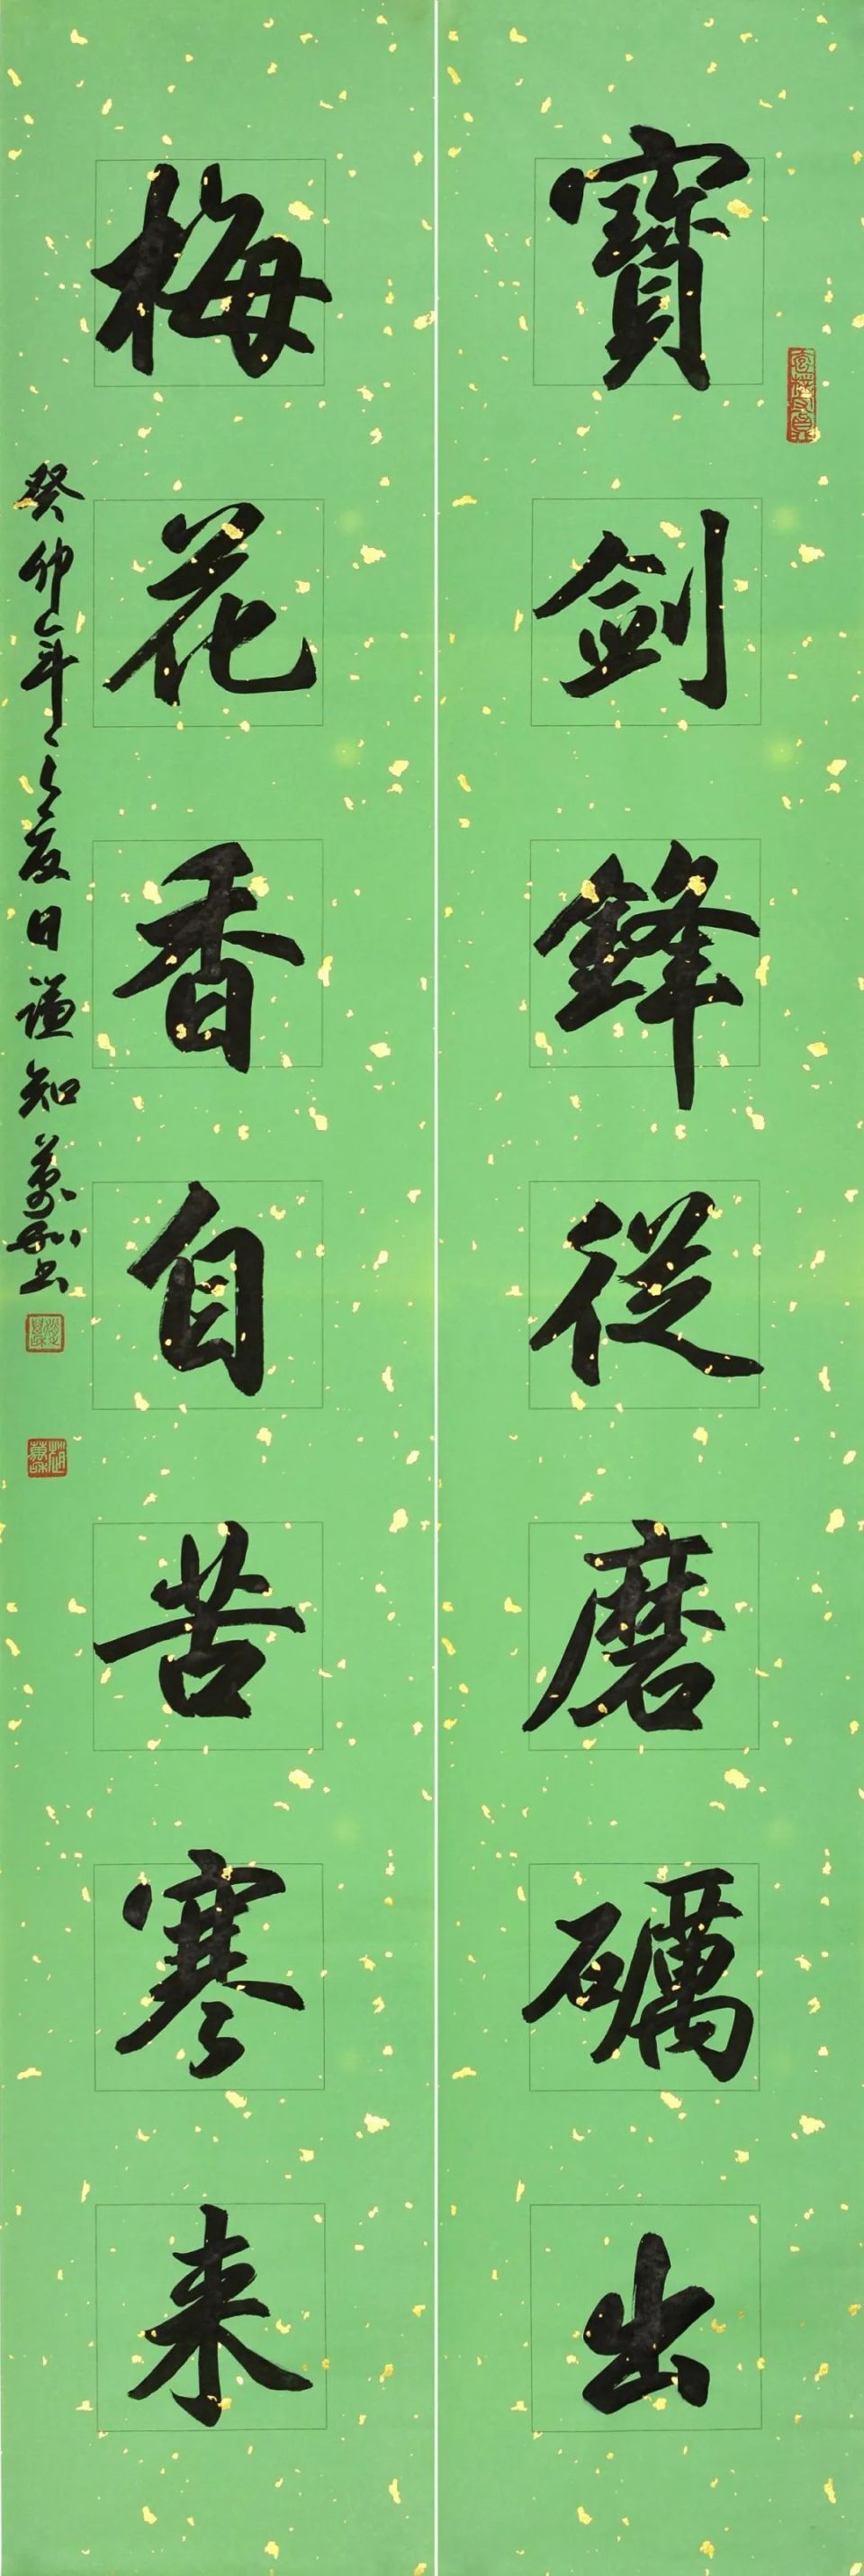 寶劍鋒從磨礪出
梅花香自苦寒来
癸卯年之夏日謙知萬和书